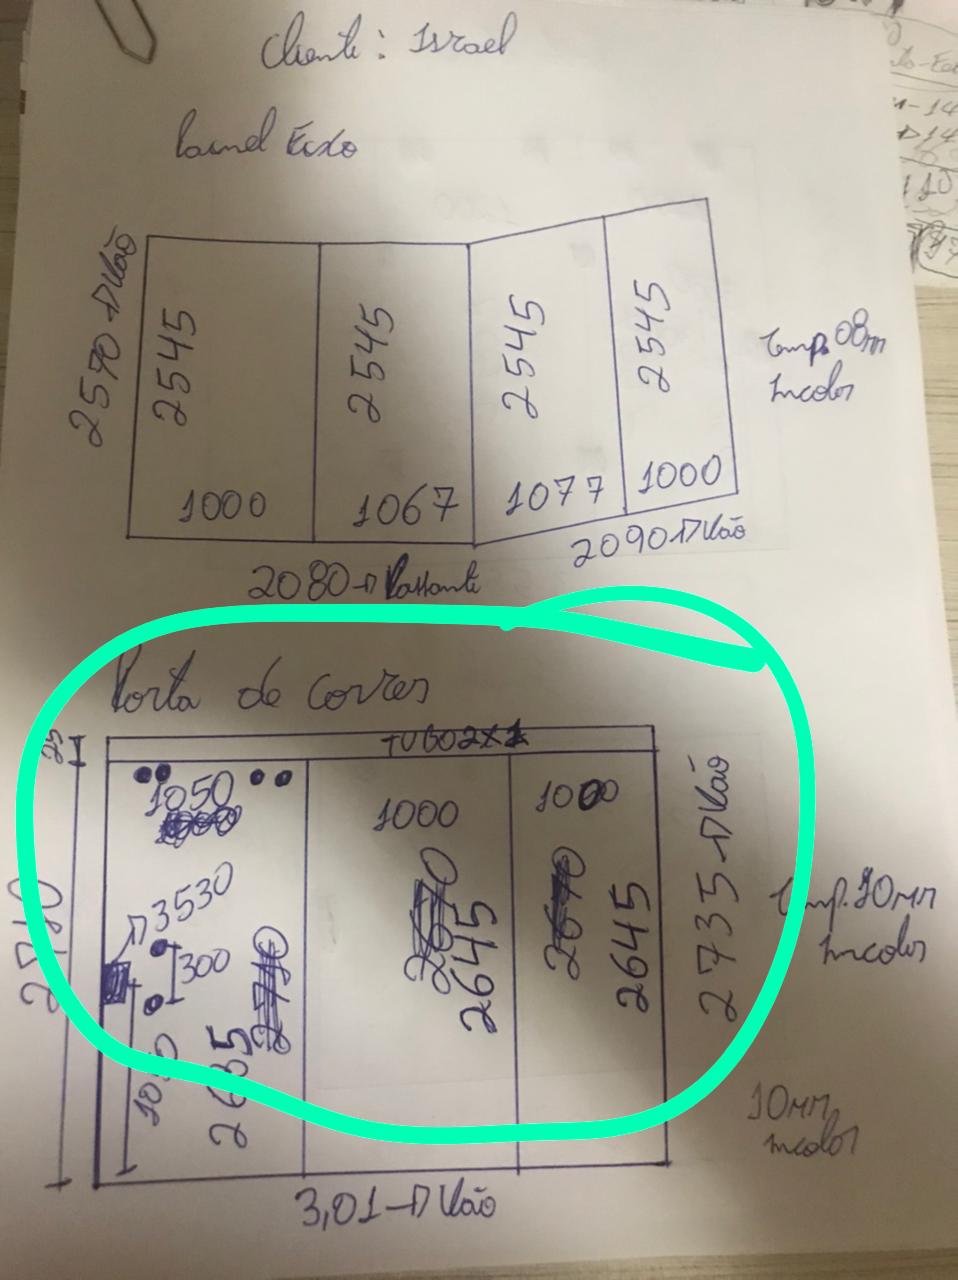 Cliente: Israel
Painel Fixo
2570 → Vão
2545
2545
2545
2545
Temp. 08mm
Incolor
1000
1067
1077
1000
2090 → Vão
2080 → Passante
Porta de Correr
TUBO 2X1
1050
1000
1000
3530
300
2685
2645
2645
2735 → Vão
2710
Temp. 10mm
Incolor
10mm
Incolor
3,01 → Vão